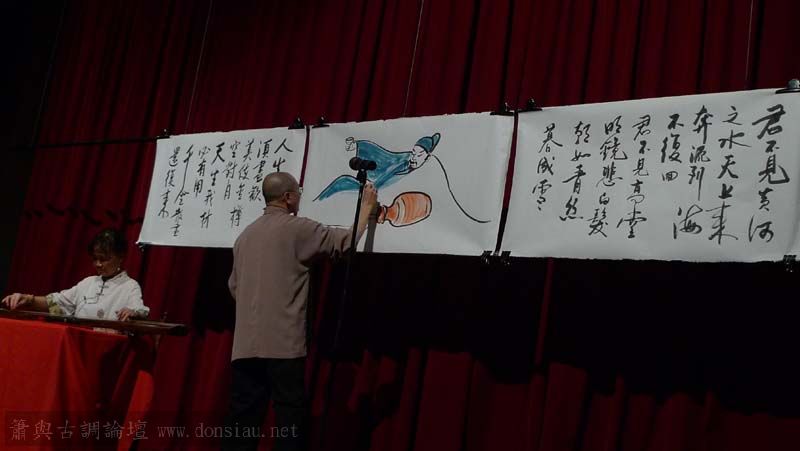 君不見黃河
之水天上來
奔流到海
不復回
君不見高堂
明鏡悲白髮
朝如青絲
暮成雪
人生
須盡歡
莫使金樽
空對月
天生我材
必有用
千金散盡
還復來
簫與古調論壇 www.donsiau.net